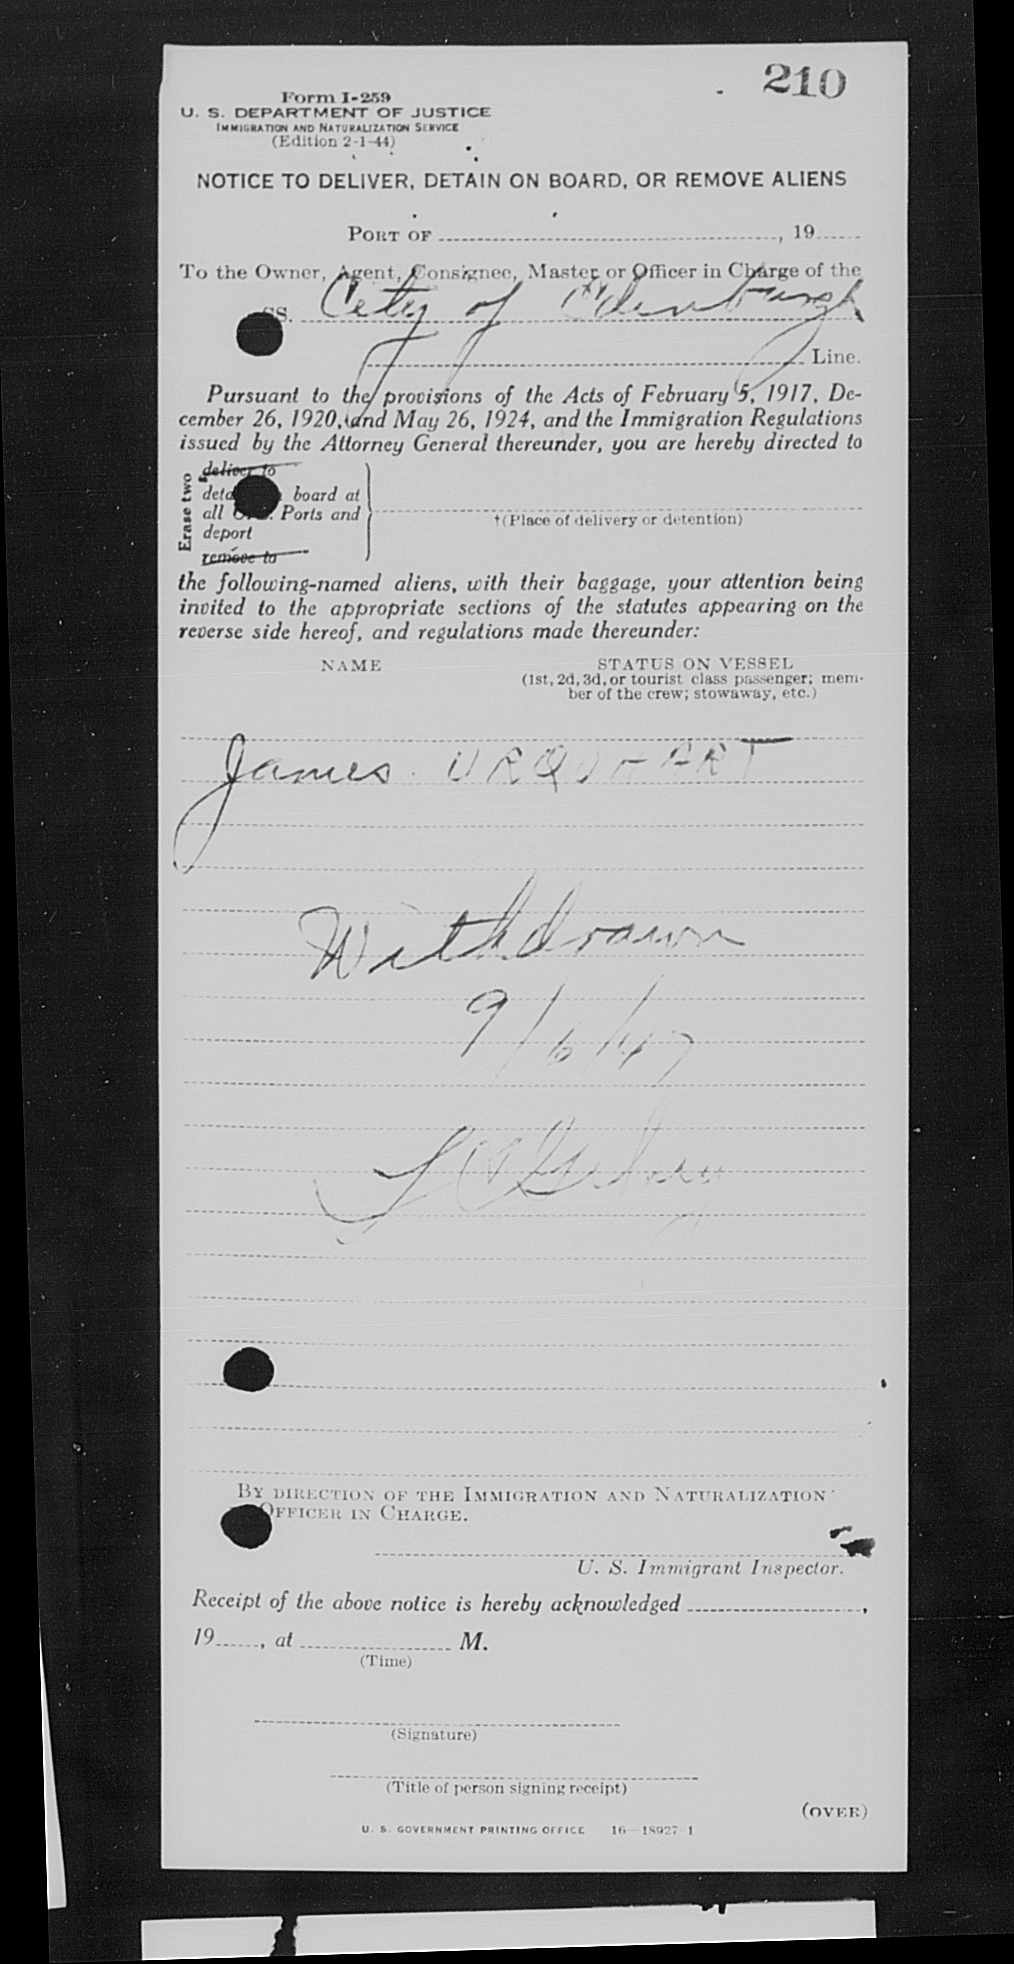 210
Form I-259
U. S. DEPARTMENT OF JUSTICE
IMMIGRATION AND NATURALIZATION SERVICE
(Edition 2-1-44)
NOTICE TO DELIVER, DETAIN ON BOARD, OR REMOVE ALIENS
PORT OF , 19
To the Owner, Agent, Consignee, Master or Officer in Charge of the
SS. City of Edenburgh
Line.
Pursuant to the provisions of the Acts of February 5, 1917, De-
cember 26, 1920, and May 26, 1924, and the Immigration Regulations
issued by the Attorney General thereunder, you are hereby directed to
Erase two
deliver to
board at
all Ports and
deport
remove to
†(Place of delivery or detention)
the following-named aliens, with their baggage, your attention being
invited to the appropriate sections of the statutes appearing on the
reverse side hereof, and regulations made thereunder:
NAME STATUS ON VESSEL
(1st, 2d, 3d, or tourist class passenger; mem-
ber of the crew; stowaway, etc.)
James URQUHART
Withdrawn
9/6/47
BY DIRECTION OF THE IMMIGRATION AND NATURALIZATION
OFFICER IN CHARGE.
U. S. Immigrant Inspector.
Receipt of the above notice is hereby acknowledged ,
19 , at M.
(Time)
(Signature)
(Title of person signing receipt)
(OVER)
U. S. GOVERNMENT PRINTING OFFICE 16—18927-1